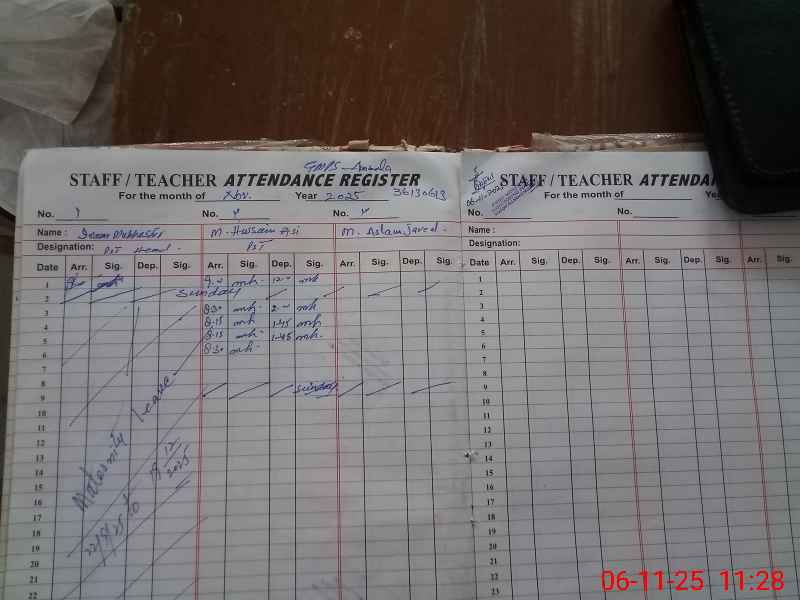 GMPS
STAFF / TEACHER ATTENDANCE REGISTER
For the month of Nov. Year 2025 36130613
No. 1 No. ۲ No. ۳
Name : M. Hussain Asi M. Aslam Javed
Designation: PST Head PST
Date Arr. Sig. Dep. Sig. Arr. Sig. Dep. Sig. Arr. Sig. Dep. Sig.
1 mh mh
2 Sunday
3 8 30 mh mh
4 8-15 mh 1-45 mh
5 8-15 mh 1-45 mh
6 8 30 mh
7
8
9 Sunday
10
11
12
13
14
15
16
17
18
19
20
21
22
Maternity Leave
22/8/25 to 19 12/2025
06-11-2025
STAFF / TEACHER ATTENDA
For the month of
No. No.
Name :
Designation:
Date Arr. Sig. Dep. Sig. Arr. Sig. Dep. Sig. Arr. Sig.
1
2
3
4
5
6
7
8
9
10
11
12
13
14
15
16
17
18
19
20
21
22
23
06-11-25 11:28